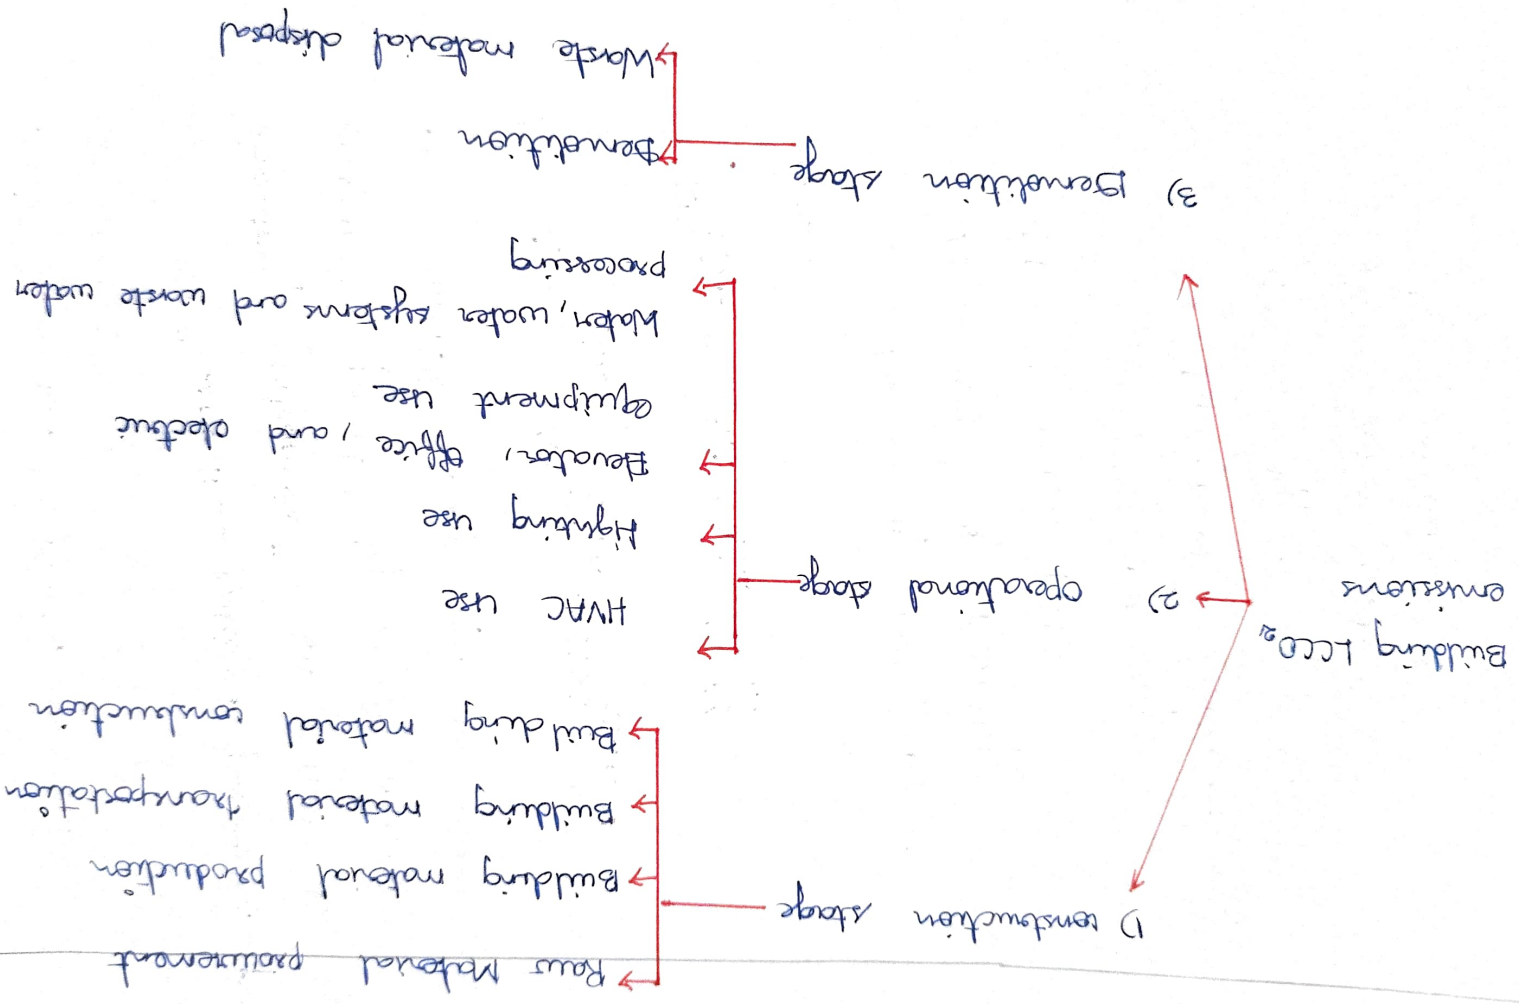 Building LCCO₂
emissions
1) construction stage
Raw Material procurement
Building material production
Building material transportation
Building material construction
2) operational stage
HVAC use
Lighting use
Elevator, office, and electric
equipment use
Water, water systems and waste water
processing
3) Demolition stage
Demolition
Waste material disposal